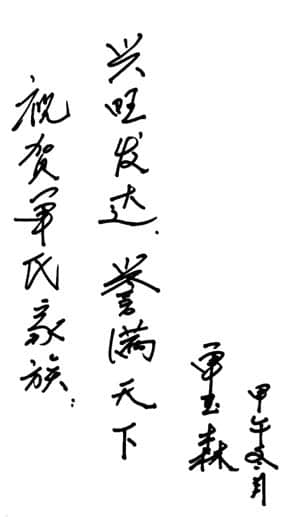 祝贺覃氏家族:
兴旺发达.誉满天下
覃玉森
甲午冬月